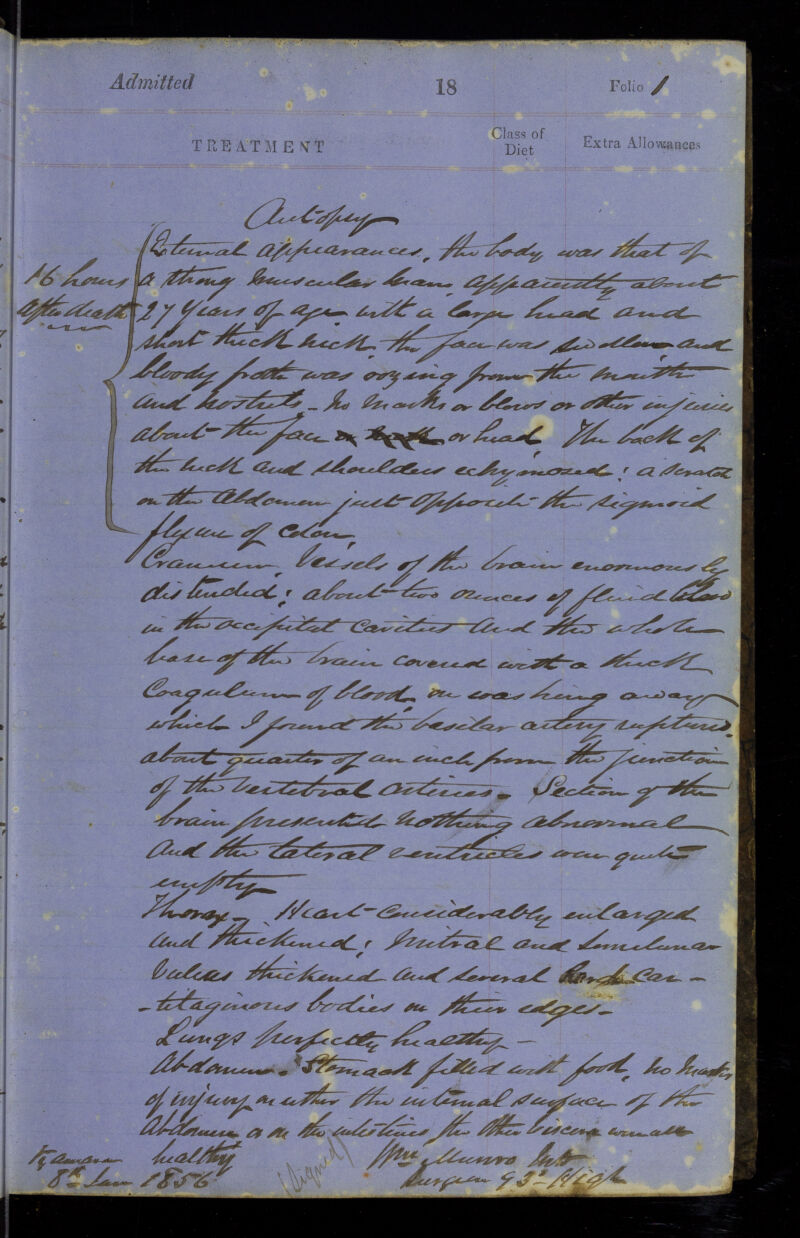 Admitted 18 Folio 1
TREATMENT Class of Diet Extra Allowances
Autopsy
External appearances. the body was that of
16 hours a strong muscular man, apparently about
after death 27 years of age with a large head and
short thick neck. the face was swollen and
bloody froth was oozing from the mouth
and nostrils - no marks or blows or other injuries
about the face or head. The back of
the neck and shoulders echymosed: a scratch
on the Abdomen just opposite the sigmoid
flexure of Colon.
Cranium. Vessels of the brain enormously
distended: about two ounces of fluid blood
in the occipital cavities and the whole
base of the brain covered with a thick
Coagulum of blood, on washing away
which I found the basilar artery ruptured.
about quarter of an inch from the junction
of the vertebral arteries - Section of the
brain presented nothing abnormal
and the lateral ventricles were quite
empty
Thorax - Heart considerably enlarged
and thickened; mitral and semilunar
Valves thickened and several hard car-
-tilaginous bodies on their edges -
Lungs perfectly healthy -
Abdomen - Stomach filled with food, no marks
of injury on either the internal surface of the
Abdomen or on the intestines the other viscera were all
healthy
8th Jan 1856
(Signed) Wm Munro
Surgeon 93d High